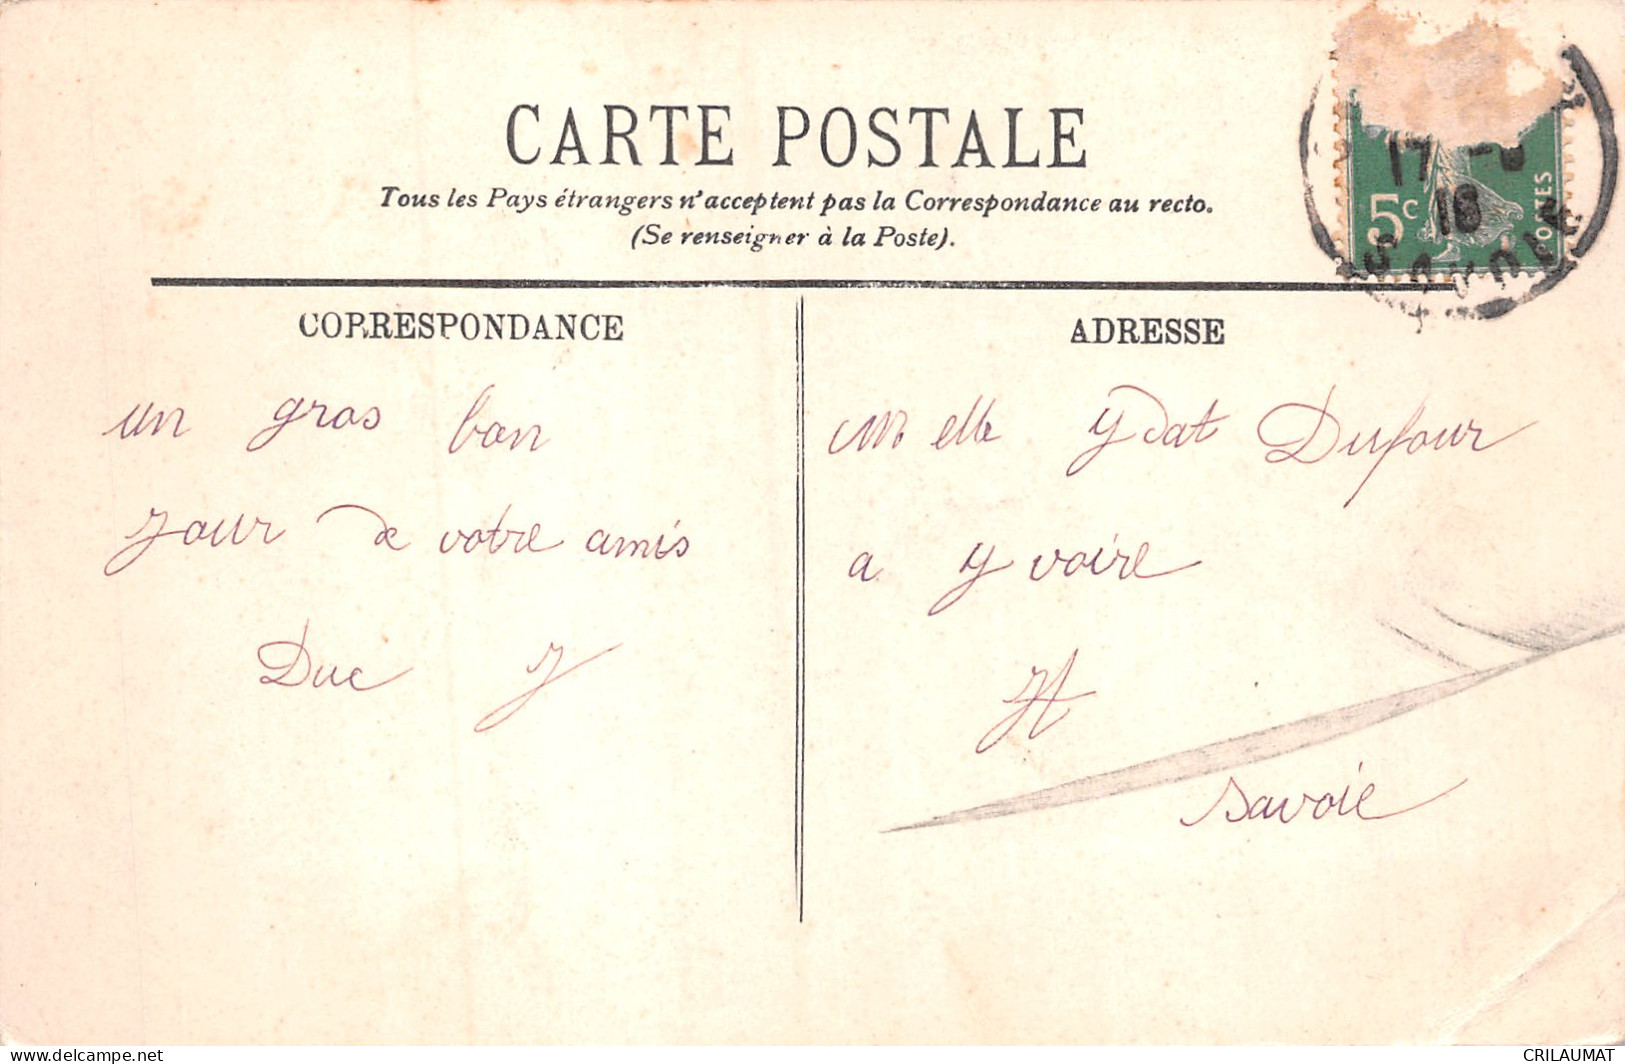 CARTE POSTALE
Tous les Pays étrangers n'acceptent pas la Correspondance au recto.
(Se renseigner à la Poste).
17
18
5c
POSTES
CORRESPONDANCE
ADRESSE
un gros bon
jour de votre amis
Duc J
Melle Ydat Dufour
a Yvoire
H
Savoie
delcampe.net
CRILAUMAT